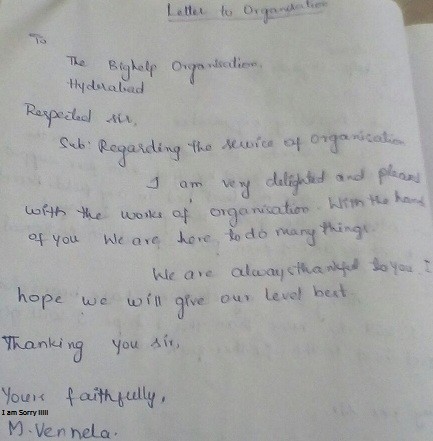 Letter to Organisation
To
The Bighelp Organisation,
Hyderabad
Respected sir,
Sub: Regarding the service of organisation
I am very delighted and pleased
with the works of organisation. With the hand
of you We are here to do many things.
We are always thankful to you. I
hope we will give our level best.
Thanking you sir,
Yours faithfully,
I am Sorry lllll
M. Vennela.